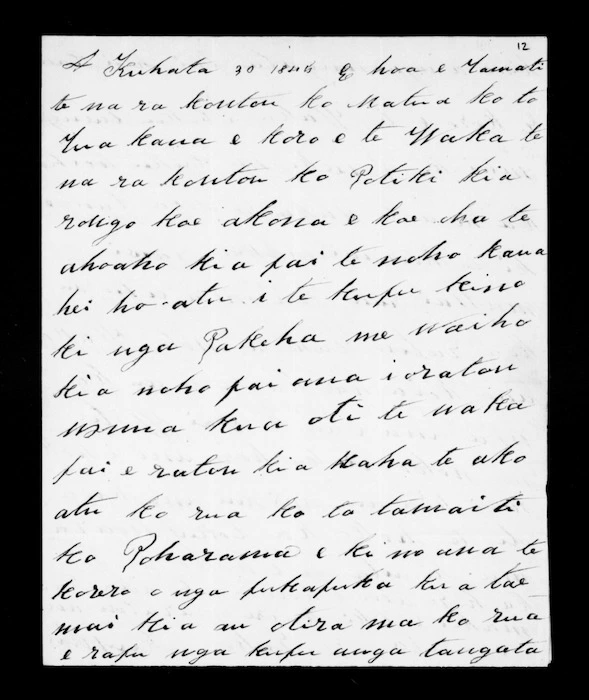 12
A Kuhata 30 1846 E hoa e Tamati
te na ra koutou ko Matua ko to
Tua kana e koro e te Waka te
na ra koutou ko Potiki kia
rongo koe akona e koe ha te
ahoaho kia pai te noho kaua
hei ho atu i te kupu kino
ki nga Pakeha me waiho
kia noho pai ana i oratou
kua oti te waka
pai e ratou kia Kaha te ako
atu ko rua ko ta tamaiti
ko Poharama e ki no ana te
korero o nga pukapuka kua tae
mai kia au otira ma ko rua
e rapu nga kupu anga tangata